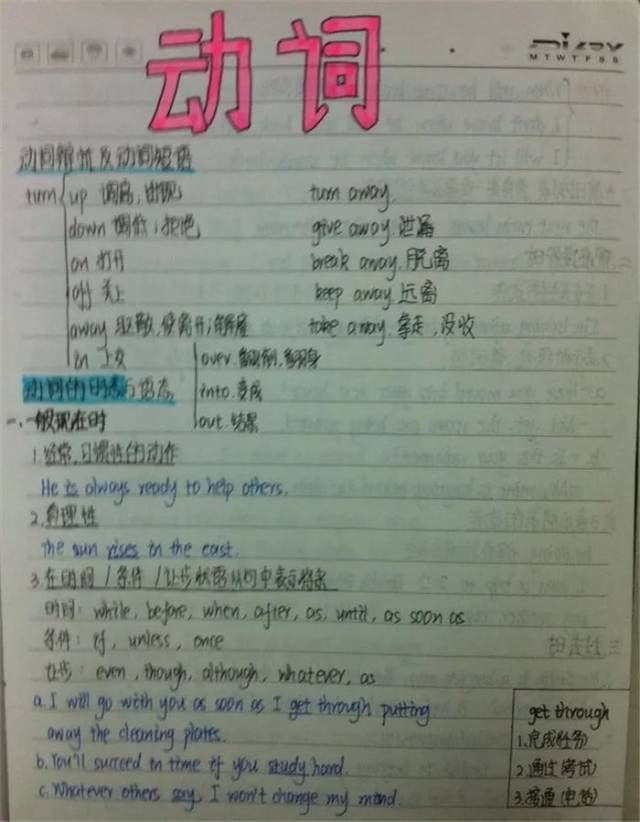 动词
MTWTFSS
动词辨析及动词短语
turn up 调高,出现 turn away.
down 调低;拒绝 give away.泄漏
on 打开 break away.脱离
off 关上 keep away.远离
away 驱散,使离开;解雇 take away.拿走,没收
in 上交 over.翻倒,翻身
动词的时态与语态 into.变成
一、一般现在时 out.结果
1.经常,习惯性的动作
He is always ready to help others.
2.真理性
The sun rises in the east.
3.在时间/条件/让步状语从句中表示将来
时间: while, before, when, after, as, until, as soon as
条件: if, unless, once
让步: even, though, although, whatever, as
a. I will go with you as soon as I get through putting
away the cleaning plates.
b. You'll succeed in time if you study hard.
c. Whatever others say, I won't change my mind.
get through
1.完成(任务)
2.通过(考试)
3.接通(电话)